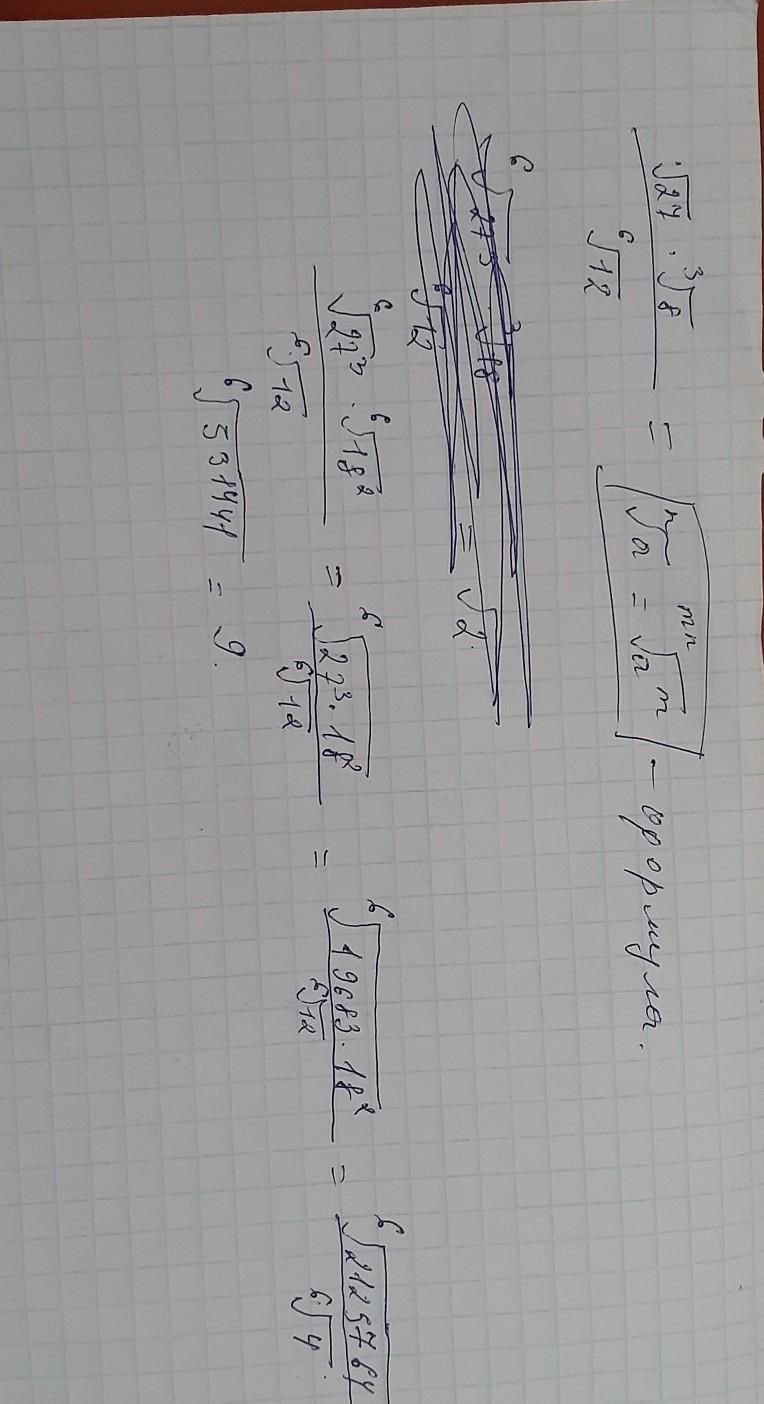 √27 · ³√8 / ⁶√12 = ⁿ√a = ᵐⁿ√aᵐ - формула.
⁶√27³ · ⁶√18² / ⁶√12 = ⁶√27³ · 18² / ⁶√12 = ⁶√19683 · 18² / ⁶√12 = ⁶√2125764 / ⁶√4
⁶√531441 = 9.